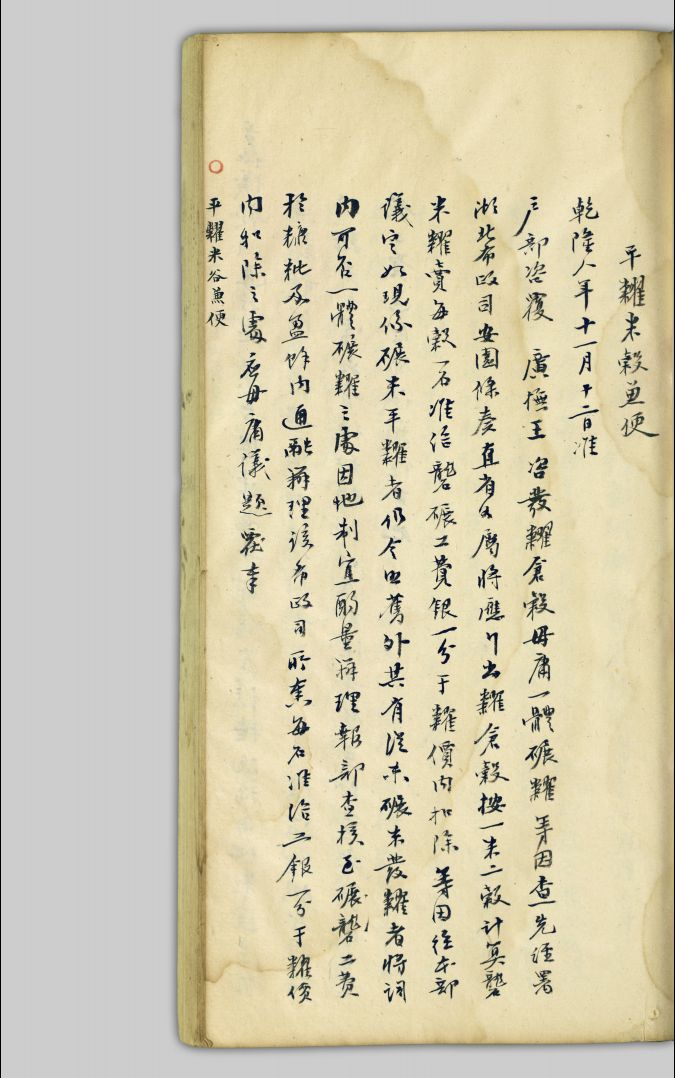 平糶米穀兼便
乾隆八年十一月十二日准
戶部咨覆 廣撫王 咨發糶倉穀毋庸一體碾糶等因查先經署
湖北布政司安圖條奏直省各屬將應行出糶倉穀按一米二穀計算礱
米糶賣每穀一石准給礱碾工費銀一分于糶價內扣除等因經本部
議定如現係碾米平糶者仍令照舊外其有從未碾米發糶者將詞
內可否一體碾糶之處因地制宜酌量辦理報部查核至碾礱工費
於糠粃及盈餘內通融辦理該布政司所奏每石准給工銀一分于糶價
內扣除之處應毋庸議題覆奉
平糶米谷兼便